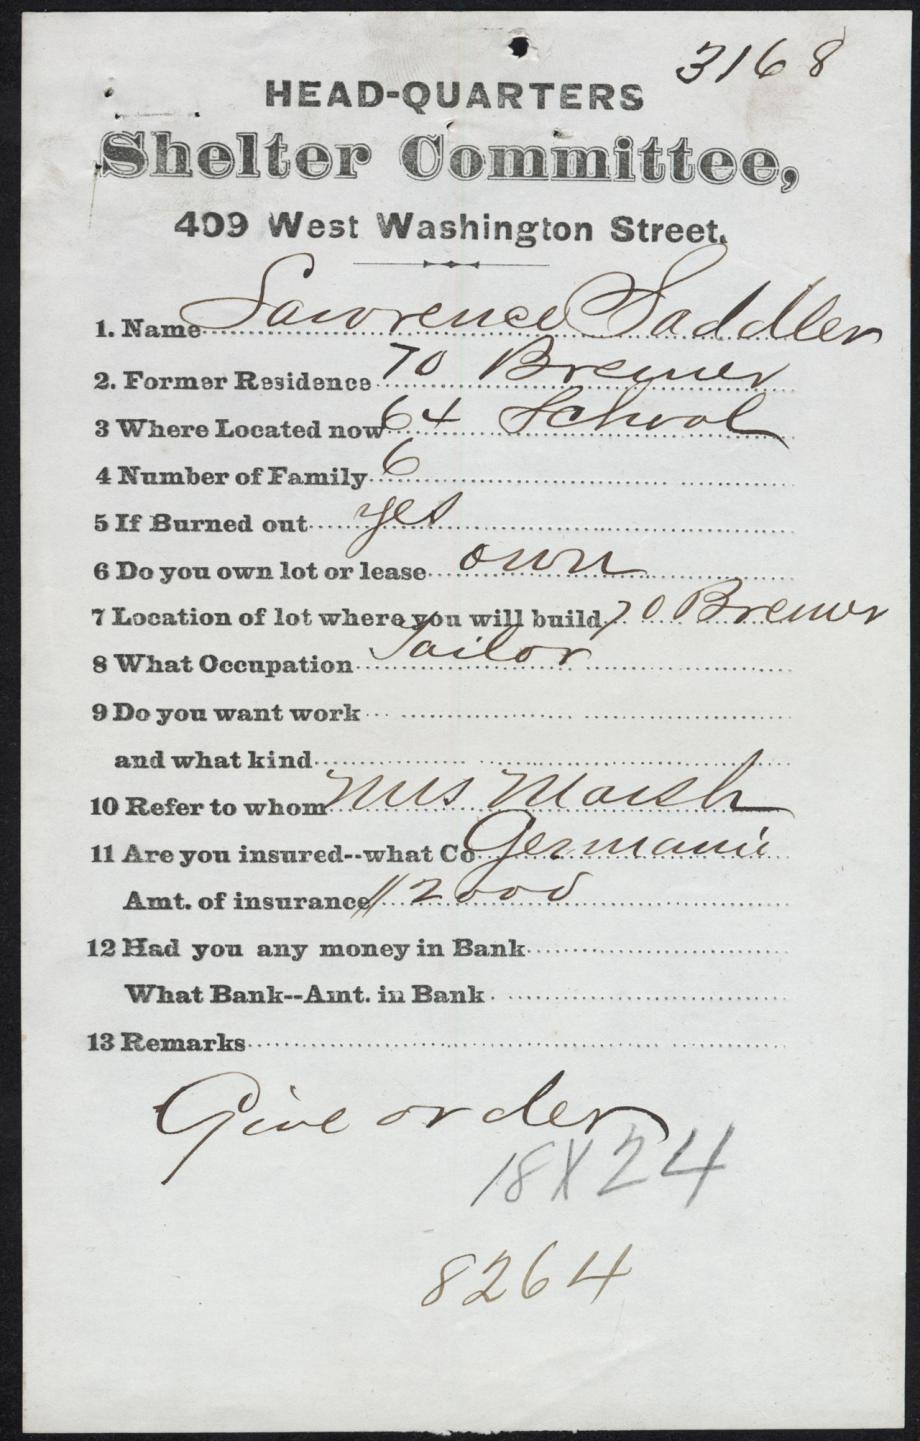 3168
HEAD-QUARTERS
Shelter Committee,
409 West Washington Street.
1. Name Lawrence Saddler
2. Former Residence 70 Bremer
3 Where Located now 64 School
4 Number of Family 6
5 If Burned out yes
6 Do you own lot or lease own
7 Location of lot where you will build 70 Bremer
8 What Occupation Tailor
9 Do you want work
and what kind
10 Refer to whom Mrs Marsh
11 Are you insured--what Co Germania
Amt. of insurance $2000
12 Had you any money in Bank
What Bank--Amt. in Bank
13 Remarks
Give order
18X24
8264